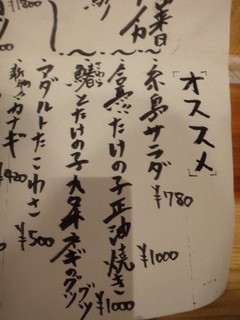 ¥1800
「オススメ」
・糸島サラダ ¥780
・合馬たけの子正油焼き ¥1000
・鰆とたけの子九条ネギのグツグツ ¥1000
さわら
・アダルトたこわさ ¥500
・新物カナギ ¥420